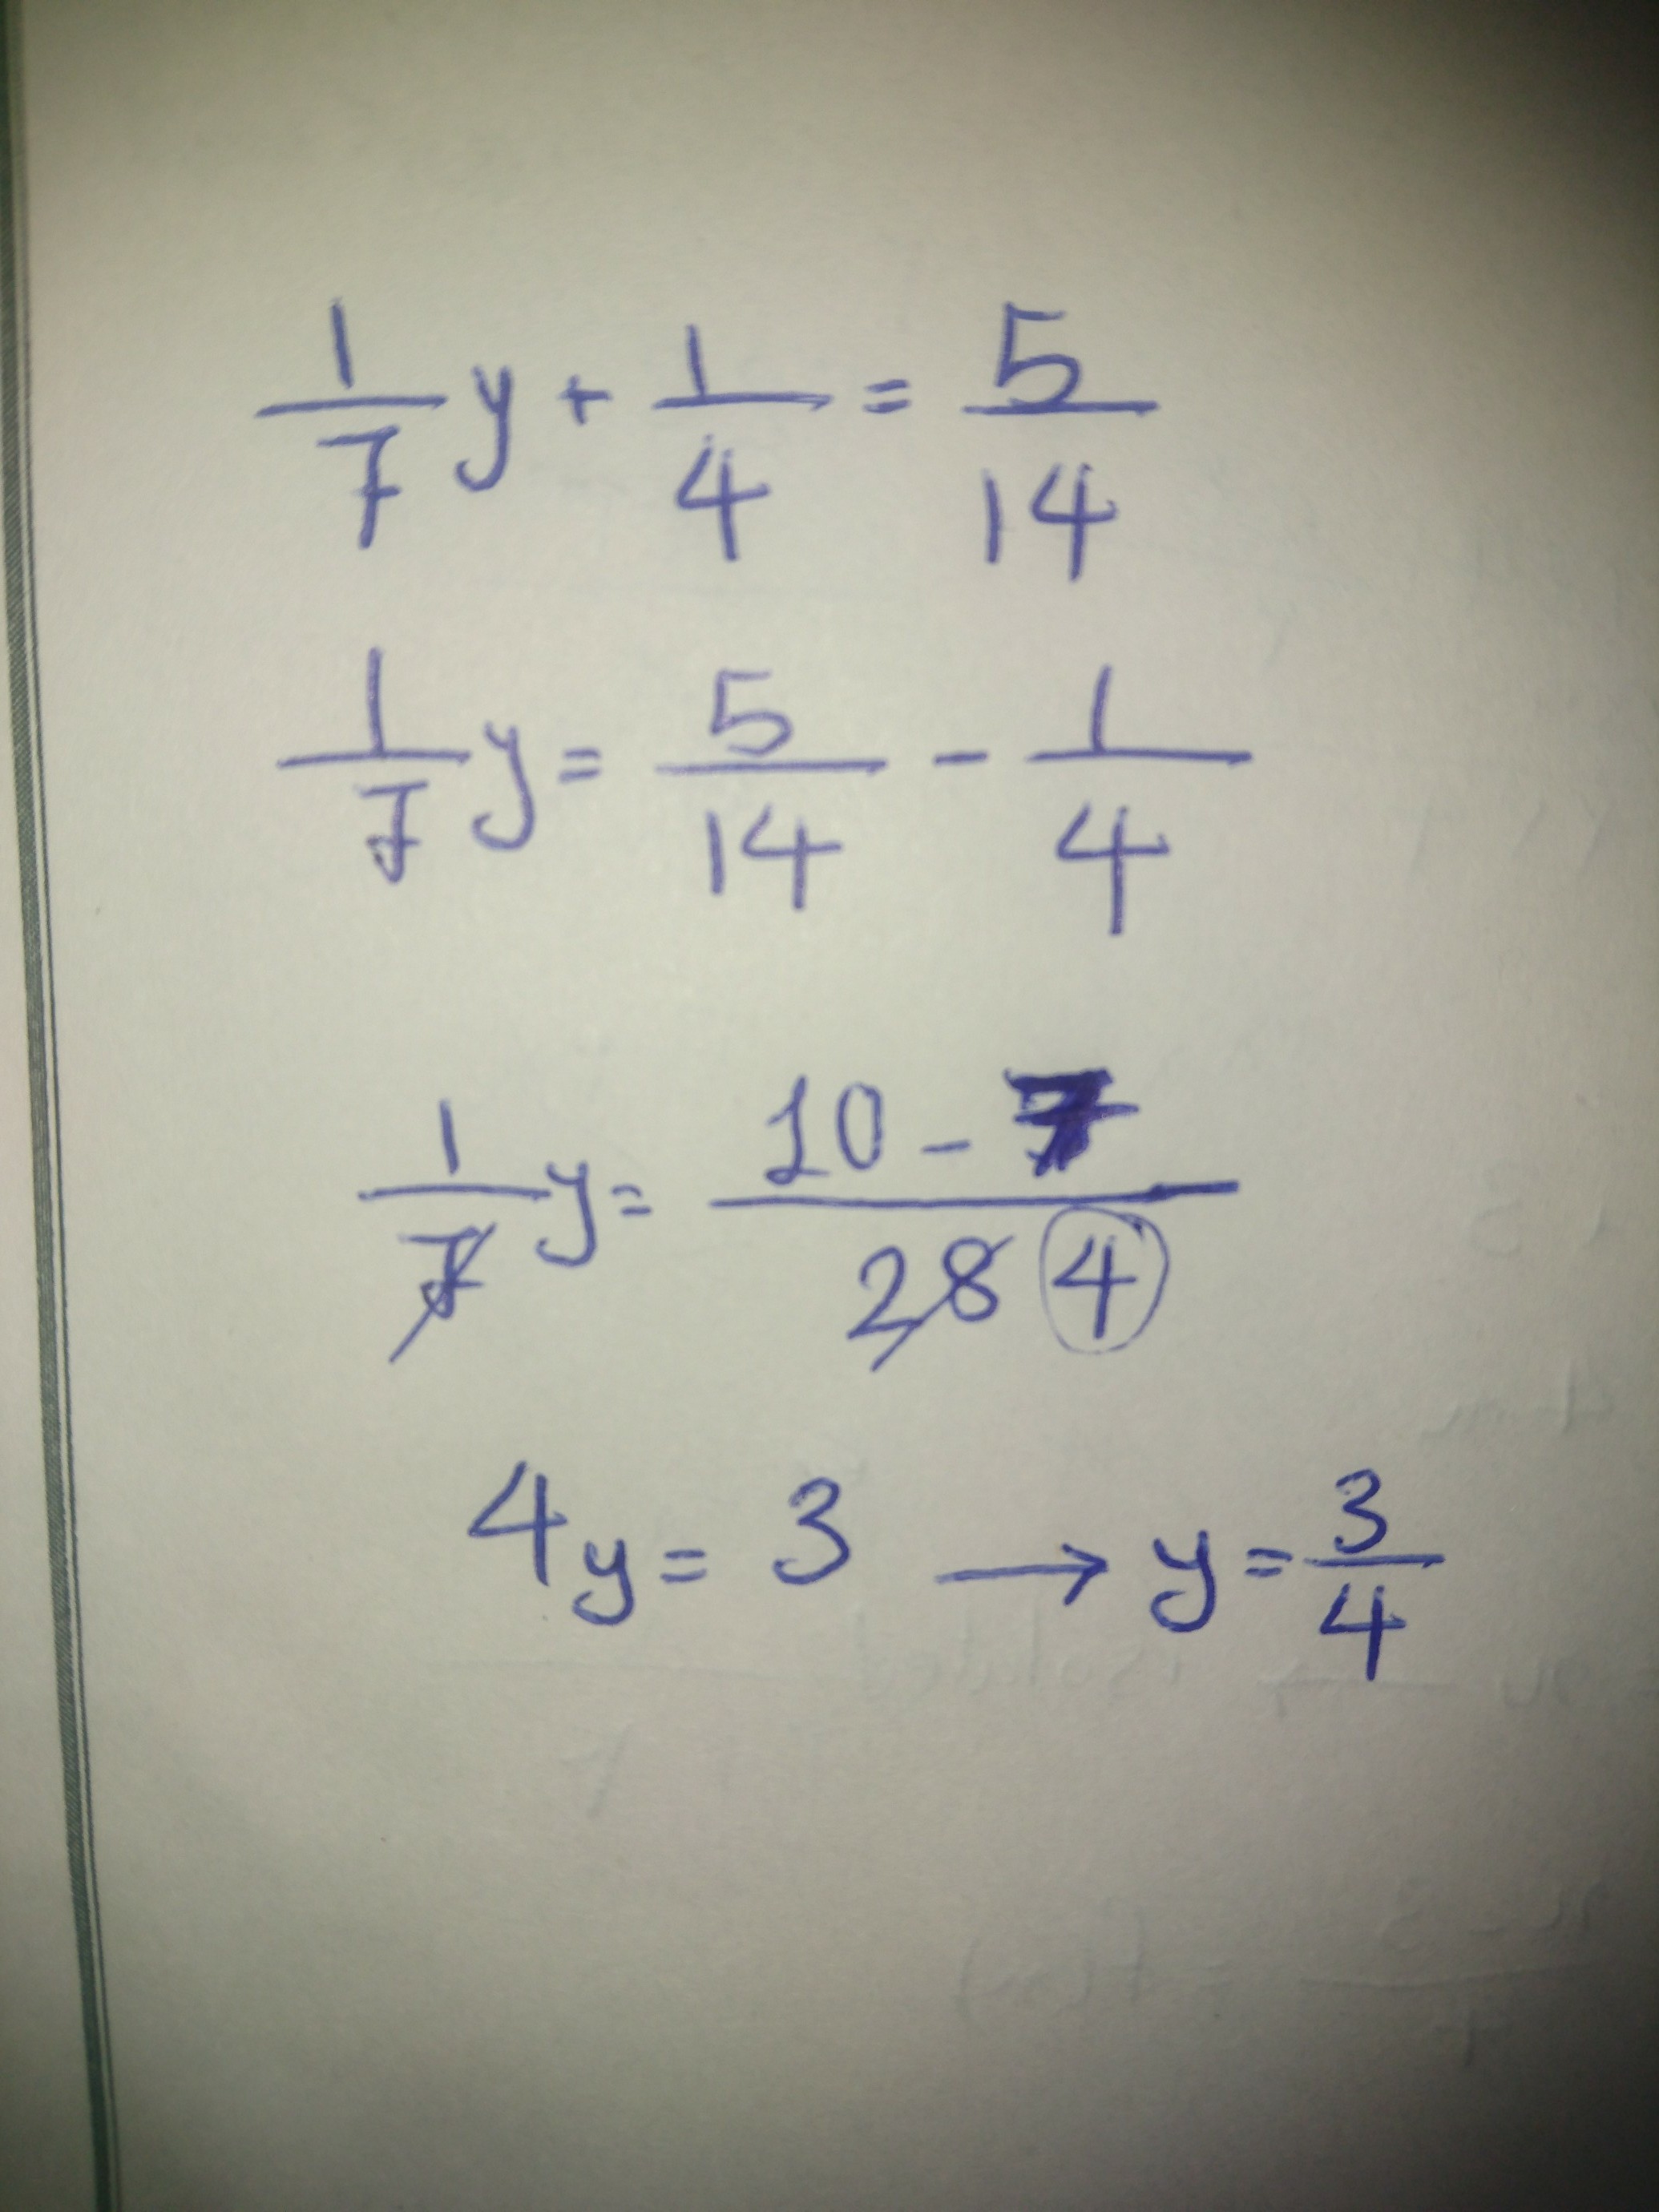 1/7 y + 1/4 = 5/14
1/7 y = 5/14 - 1/4
1/7 y = 10 - 7/28 4
4y = 3 → y = 3/4